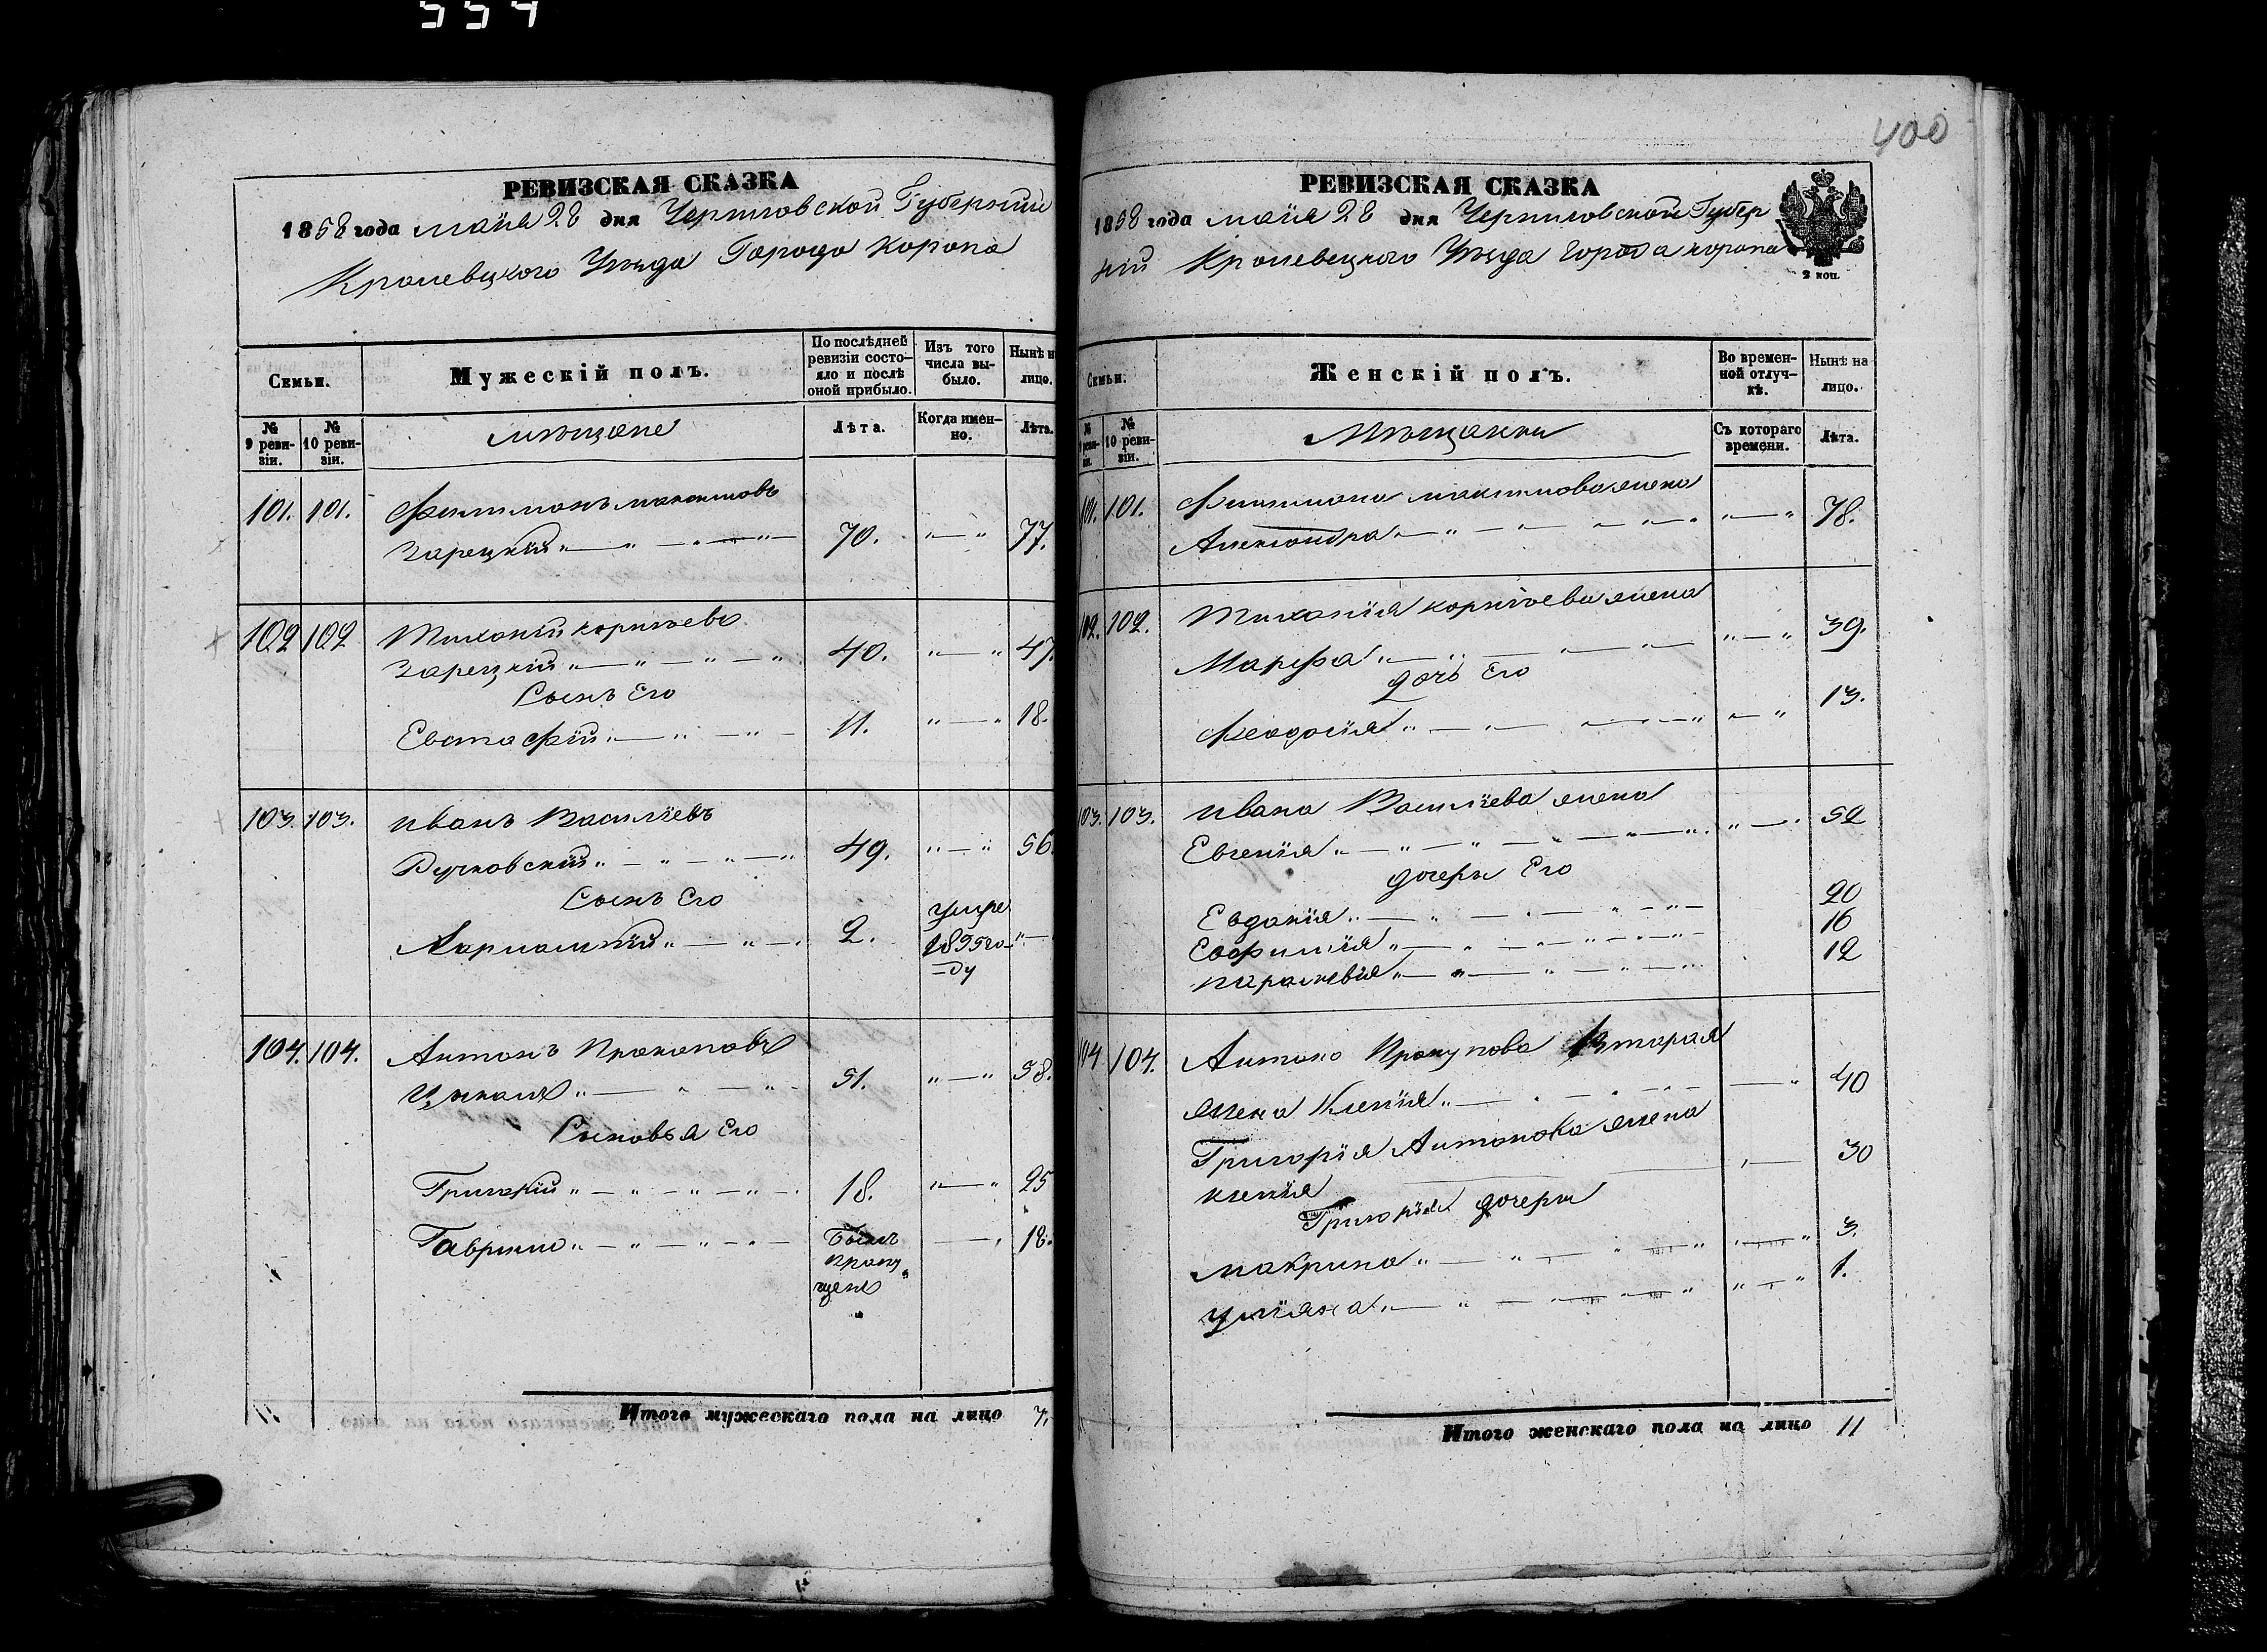 554
РЕВИЗСКАЯ СКАЗКА
1858 года маія 28 дня Черниговской Губерніи
Кролевецкого Уѣзда Города Коропа
Семьи.
Мужескій полъ.
По послѣдней ревизіи состояло и послѣ оной прибыло.
Изъ того числа выбыло.
Нынѣ н лицо.
№ 9 ревизіи.
№ 10 ревизіи.
мѣщане
Лѣта.
Когда именно.
Лѣта.
101. 101. Филимонъ максимовъ
Зарецкій 70. 77.
102 102 Тихоній корнѣевъ
Зарецкій 40. 47.
Сынъ Его
Евстафій 11. 18.
103. 103. иванъ Васильевъ
Ручковскій 49. 56.
Сынъ Его
2. умре
1855 го
ду
104. 104. Антонъ Прокоповъ
Цыкаля 51. 58.
Сыновья Его
Григорій 18. 25
Гавріил Былъ 18.
пропу
щенъ
Итого мужескаго пола на лицо 7.
400
РЕВИЗСКАЯ СКАЗКА
1858 года маія 28 дня Черниговской Губер
ніи Кролевецкого Уѣзда города коропа
2 коп.
Семьи.
Женскій полъ.
Во временной отлучкѣ.
Нынѣ на лицо.
№ 9 ревизіи.
№ 10 ревизіи.
Мѣщанки
Съ котораго времени.
Лѣта.
101. 101. Филимона максимова жена
Александра 78.
102. 102. Тихонія корнѣева жена
Марфа 39.
дочь Его
Феодосія 13.
103. 103. ивана Васильева жена
Евгенія 52
дочери Его
Евдокія 20
Евфимія 16
параскевія 12
104 104. Антона Прокупова Вторая
жена Ксенія 40
Григорія Антонова жена
ксенія 30
Григорія дочери
макрина 3.
уліяна 1.
Итого женскаго пола на лицо 11